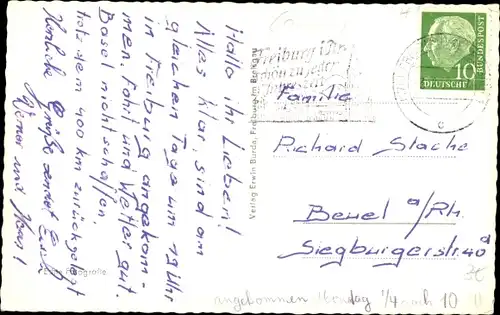 Hallo ihr Lieben!
Alles klar, sind am
gleichen Tage um 19 Uhr
in Freiburg angekom-
men. Fahrt und Wetter gut.
Basel nicht schaffen
trotzdem 400 km zurückgelegt
Herzliche Grüße sendet Euch
Werner und
Verlag Erwin Burda, Freiburg im Breisgau
Freiburg i. Br.
schön zu jeder
DEUTSCHE
BUNDESPOST
10
c
Familie
Richard Stache
Beuel a/Rh.
Siegburgerstr. 40a
angekommen Montag 1/4 nach 10